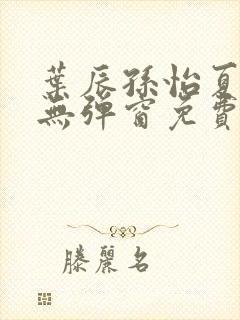 葉辰孫怡夏
無彈窗免費
滕麗名